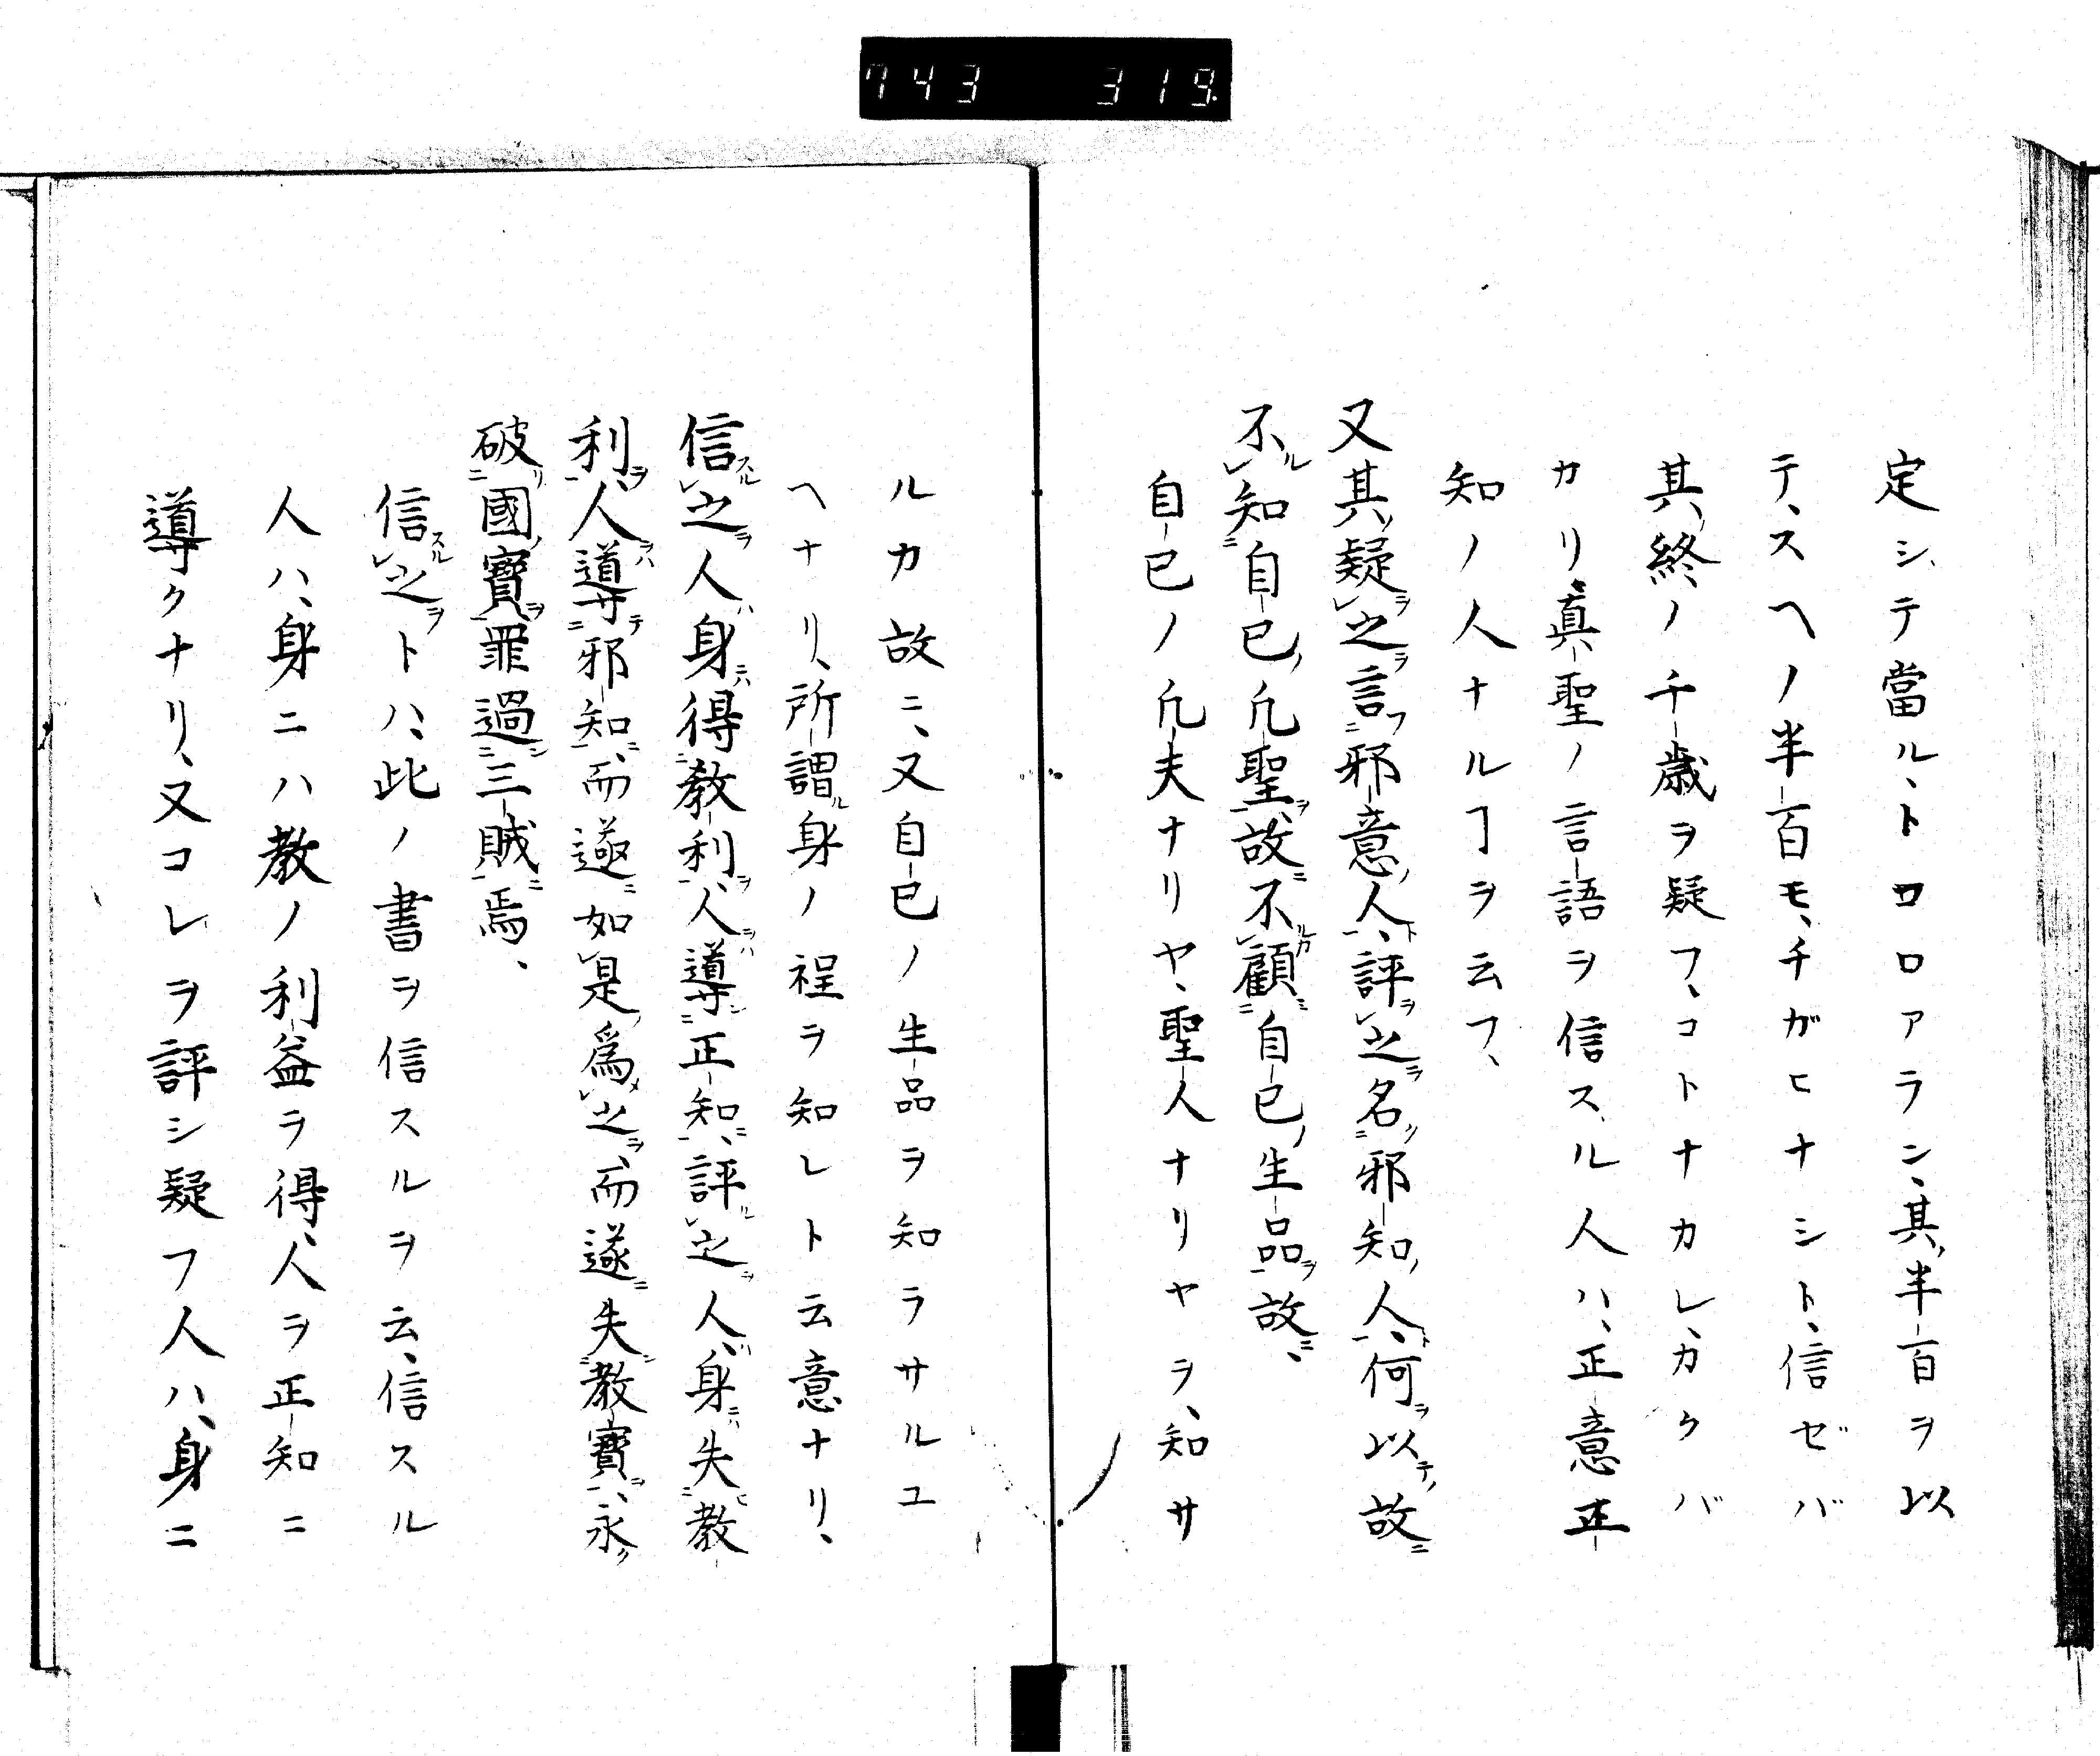 743 319.
定シテ當ル、トロロアラン、其半百ヲ以
テ、スヘノ半百モ、チガヒナシト、信ゼバ
其終ノ千歳ヲ疑フ、コトナカレ、カクバ
カリ眞聖ノ言語ヲ信スル人ハ、正意正
知ノ人ナルヿヲ云フ、
又其疑之言邪意人、評之名邪知人、何以故
不知自已凡聖、故不顧自已生品故、
自已ノ凡夫ナリヤ、聖人ナリヤヲ、知サ
ルカ故ニ、又自已ノ生品ヲ知ラサルユ
ヘナリ、所謂身ノ程ヲ知レト云意ナリ、
信之人身得教利、人導正知、評之人、身失教
利、人導邪知、而遂如是爲之、而遂失教寶、永
破國寶、罪過三賊焉、
信之トハ、此ノ書ヲ信スルヲ云、信スル
人ハ、身ニハ教ノ利益ヲ得、人ヲ正知ニ
導クナリ、又コレヲ評シ疑フ人ハ、身ニ